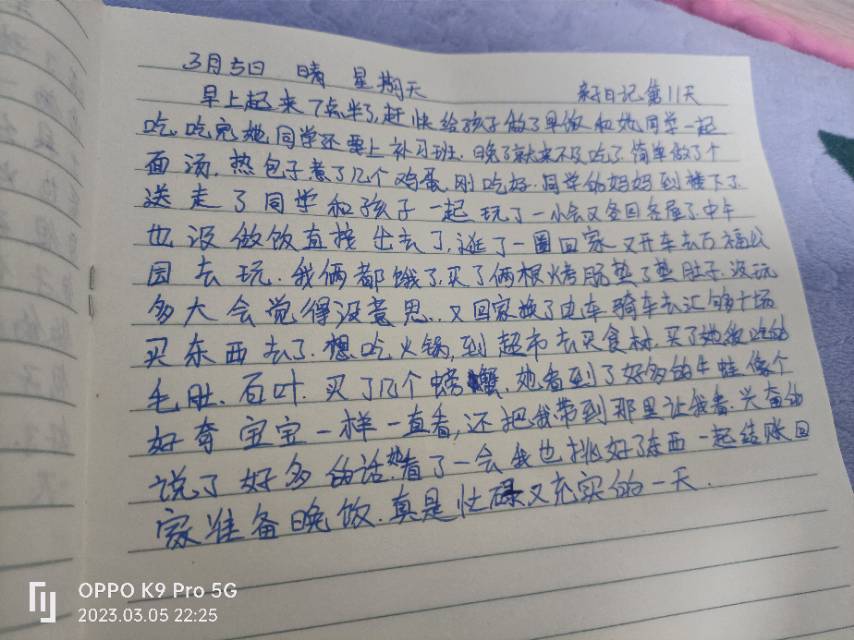 3月5日 晴 星期天 亲子日记第11天
早上起来7点半了,赶快给孩子做了早饭和她同学一起
吃,吃完她同学还要上补习班.晚了就来不及吃了.简单做了个
面汤.热包子煮了几个鸡蛋.刚吃好.同学的妈妈到楼下了
送走了同学和孩子一起玩了一小会又各回各屋了.中午
也没做饭直接出去了,逛了一圈回家又开车去万福公
园去玩.我俩都饿了,买了俩根烤肠垫了垫肚子.没玩
多大会觉得没意思..又回家换了电车骑车去汇够广场
买东西去了.想吃火锅,到超市去买食材.买了她我吃的
毛肚.百叶.买了几个螃蟹.她看到了好多的牛蛙像个
好奇宝宝一样一直看,还把我带到那里让我看.兴奋的
说了好多的话.看了一会我也挑好了东西一起结账回
家准备晚饭.真是忙碌又充实的一天.
OPPO K9 Pro 5G
2023.03.05 22:25